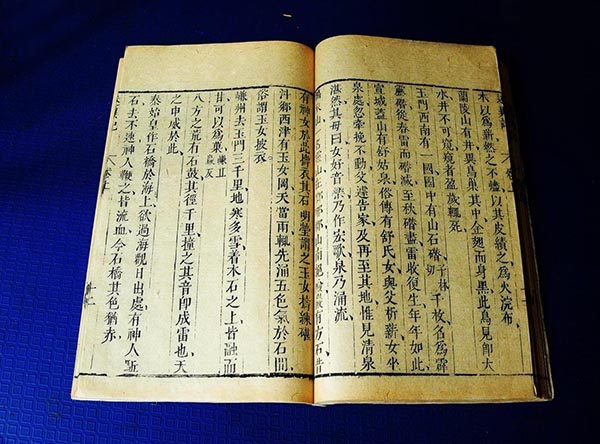 木以爲薪然之不燼以其皮績之爲火浣布
蘭陵山有井異鳥巢其中金翅而身黑此鳥見即大
水井不可窺窺者盈歲輒死
玉門西南有一國國中有山石千枚名爲霹
靂從春雷而減至秋盡雷收復生年年如此
宣城蓋山有舒姑泉俗傳有舒氏女與父析薪女坐
泉處忽牽挽不動父遽告家及再至其地惟見清泉
湛然其母曰女好音樂乃作宏歌泉乃涌流
有神女於此擣衣其石明瑩謂之玉女擣練碪
鄉西津有玉女岡天當雨輒先涌五色氣於石間
俗謂玉女披衣
州去玉門三千里地寒多雪着木石之上皆融而
甘可以爲菓
八方之荒有石鼓其徑千里撞之其音即成雷也天
之申威於此
秦始皇作石橋於海上欲過海觀日出處有神人驅
石去不速神人鞭之皆流血今石橋其色猶赤
卷上